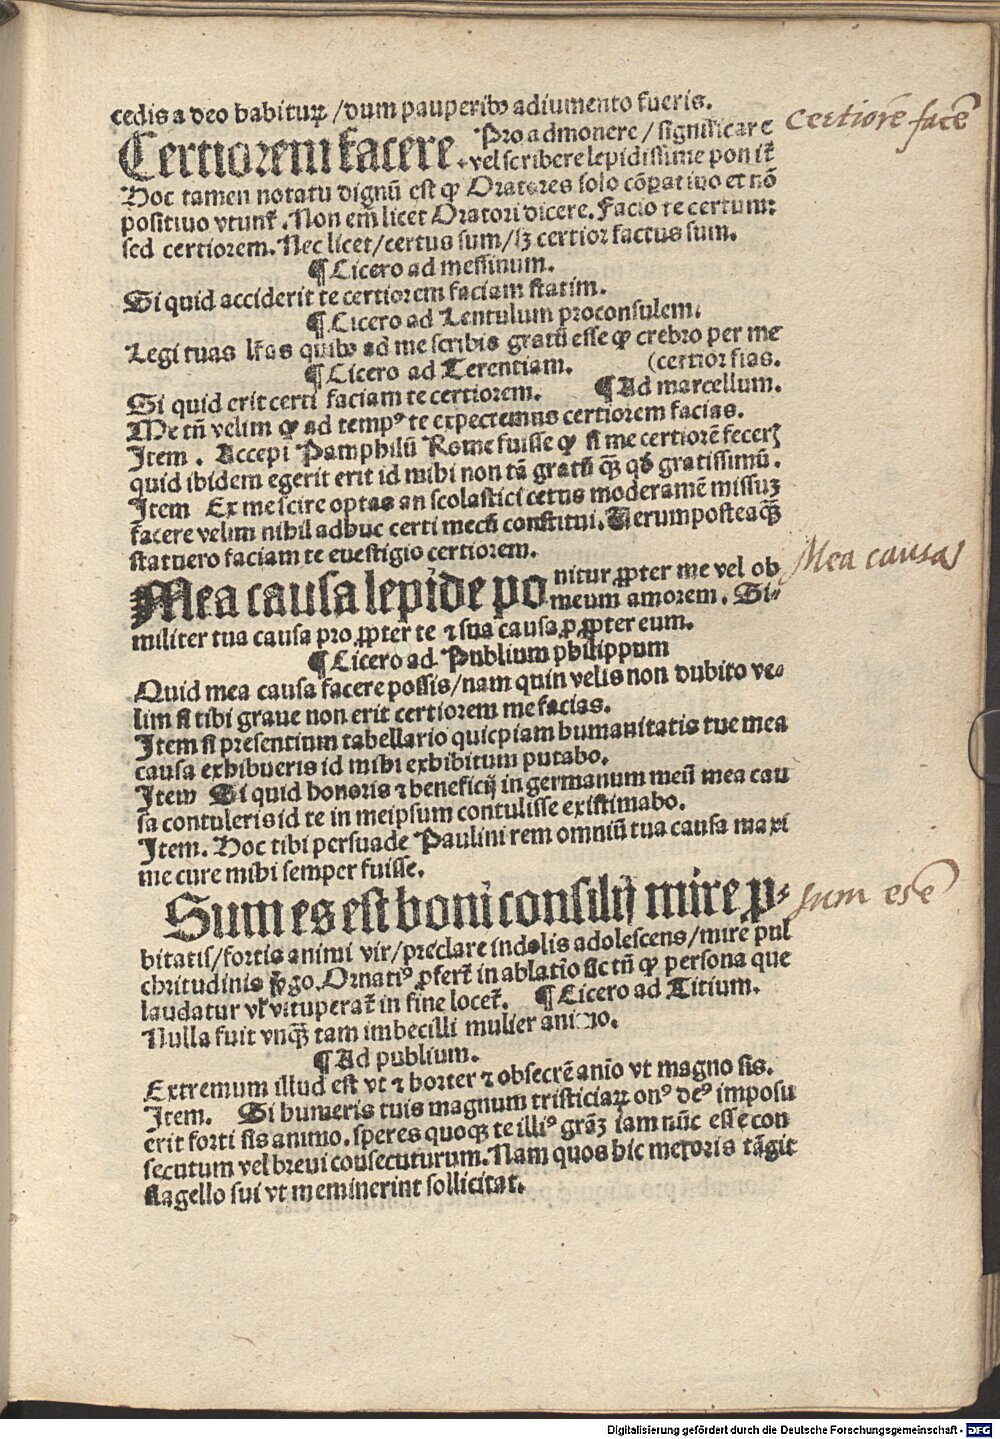 cedis a deo habituꝝ /dum pauperibꝰ adiumento fueris.
Certiorem facere. Pro admonere / significare
vel scribere lepidissime ponit᷑
Hoc tamen notatu dignū est ꝙ Oratores solo cōꝑatiuo et nō
positiuo vtunt᷑. Non em̄ licet Oratori dicere. Facio te certum:
sed certiorem. Nec licet/certus sum/sꝫ certior factus sum.
¶ Cicero ad messinum.
Si quid acciderit te certiorem faciam statim.
¶ Cicero ad Lentulum proconsulem.
Legi tuas lr̄as quibꝰ ad me scribis gratū esse ꝙ crebro per me
(certior fias.
¶ Cicero ad Terentiam.
Si quid erit certi faciam te certiorem. ¶ Ad marcellum.
Me tn̄ velim ꝙ ad tempꝰ te expectemus certiorem facias.
Item . Accepi Pamphilū Rome fuisse ꝙ si me certiorē fecerꝭ
quid ibidem egerit erit id mihi non tā gratū q̄ꝫ qd̓ gratissimū.
Item Ex me scire optas an scolastici cetus moderamē missuꝫ
facere velim nihil adhuc certi mecū constitui. Uerumposteaq̄ꝫ
statuero faciam te euestigio certiorem.
Mea causa lepide ponitur ꝓpter me vel ob
meum amorem. Si-
militer tua causa pro ꝓpter te ⁊ sua causa ꝓ ꝓpter eum.
¶ Cicero ad Publium philippum
Quid mea causa facere possis/nam quin velis non dubito ve-
lim si tibi graue non erit certiorem me facias.
Item si presentium tabellario quicpiam humanitatis tue mea
causa exhibueris id mihi exhibitum putabo.
Item Si quid honoris ⁊ beneficij in germanum meū mea cau
sa contuleris id te in meipsum contulisse existimabo.
Item. Hoc tibi persuade Paulini rem omniū tua causa maxi
me cure mihi semper fuisse.
Sum es est boni consilij mire ꝓ-
bitatis/fortis animi vir/preclare indolis adolescens/mire pul
chritudinis v̓go. Ornatiꝰ ꝓfert᷑ in ablatio sic tn̄ ꝙ persona que
laudatur vl̓ vituperat᷑ in fine locet᷑. ¶ Cicero ad Titium.
Nulla fuit vnq̄ꝫ tam imbecilli mulier animo.
¶ Ad publium.
Extremum illud est vt ⁊ horter ⁊ obsecrē anīo vt magno sis.
Item. Si humeris tuis magnum tristiciaꝝ onꝰ deꝰ imposu
erit forti sis animo. speres quoqꝫ te illiꝰ grāꝫ iam nūc esse con
secutum vel breui consecuturum. Nam quos hic meroris tāgit
flagello sui vt meminerint sollicitat.
Certiorē facē
Mea causa
sum es ē
Digitalisierung gefördert durch die Deutsche Forschungsgemeinschaft - DFG